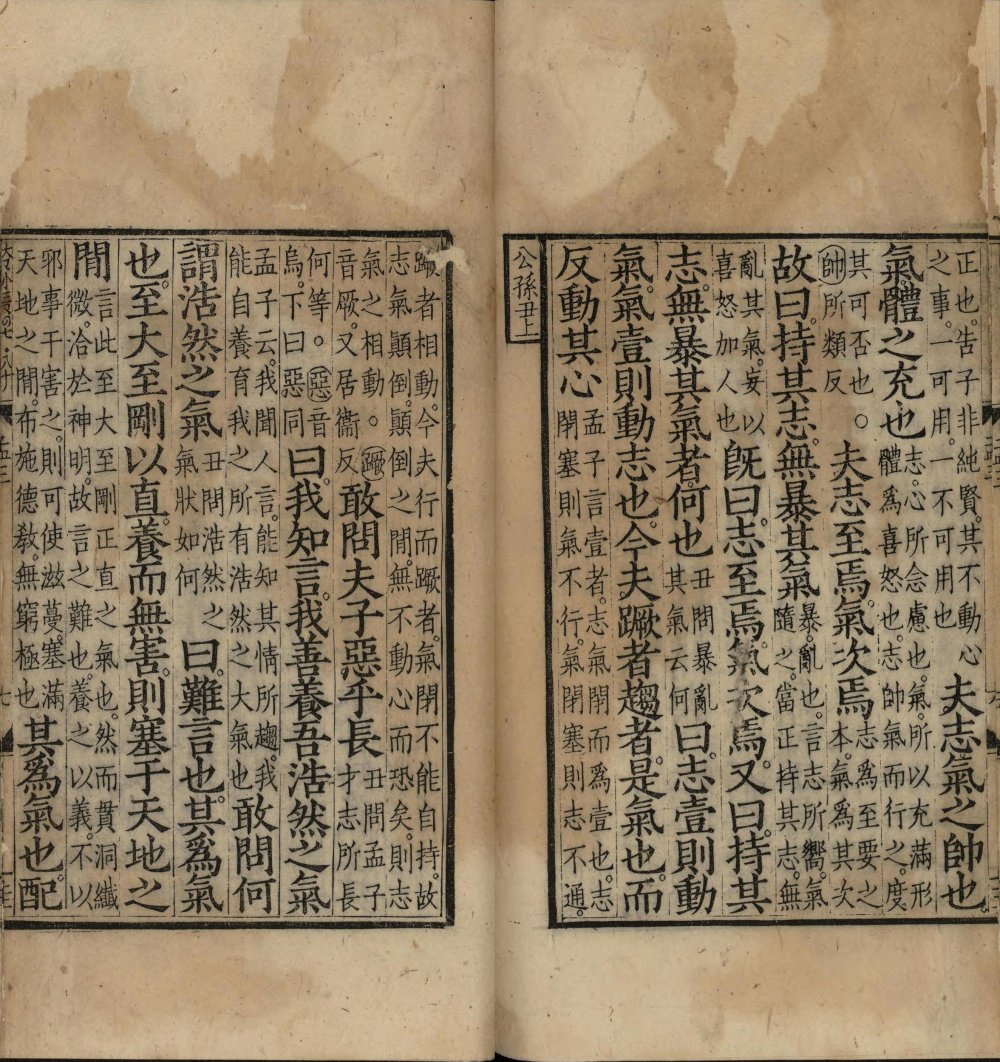 正也。告子非純賢。其不動心
之事。一可用。一不可用也
夫志氣之帥也
氣。體之充也
志。心所念慮也。氣。所以充滿形
體爲喜怒也。志帥氣而行之。度
其可否也。○
帥所類反
夫志至焉。氣次焉
志爲至要之
本。氣爲其次
故曰。持其志。無暴其氣
暴。亂也。言志所嚮氣
隨之。當正持其志。無
亂其氣。妄以
喜怒加人也
旣曰。志至焉。氣次焉。又曰。持其
志。無暴其氣者。何也
丑問暴亂
其氣云何
曰。志壹則動
氣。氣壹則動志也。今夫蹶者趨者。是氣也。而
反動其心
孟子言壹者。志氣閉而爲壹也。志
閉塞則氣不行。氣閉塞則志不通。
公孫丑上
蹶者相動。今夫行而蹶者。氣閉不能自持。故
志氣顚倒。顚倒之間。無不動心而恐矣。則志
氣之相動。○蹶
音厥。又居衞反
敢問夫子惡乎長
丑問孟子
才志所長
何等。○惡音
烏。下曰惡同
曰。我知言。我善養吾浩然之氣
孟子云。我聞人言。能知其情所趨。我
能自養育我之所有浩然之大氣也
敢問何
謂浩然之氣
丑問浩然之
氣狀如何
曰。難言也。其爲氣
也。至大至剛以直。養而無害。則塞于天地之
間
言此至大至剛正直之氣也。然而貫洞纖
微。洽於神明。故言之難也。養之以義。不以
邪事干害之。則可使滋蔓。塞滿
天地之間。布施德敎。無窮極也
其爲氣也。配